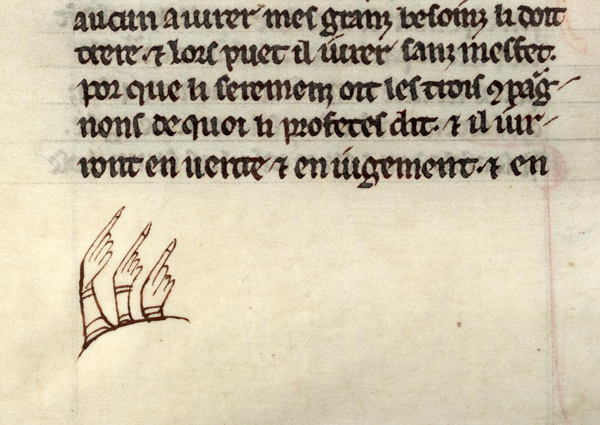 aucun a iurer mes granz besoinz li doit
trere. ⁊ lors puet il iurer sanz messet.
por que li seremenz oit les trois ꝯpaig-
nons de quoi li profetes dit. ⁊ il iur-
ront en uerite ⁊ en iugement. ⁊ en